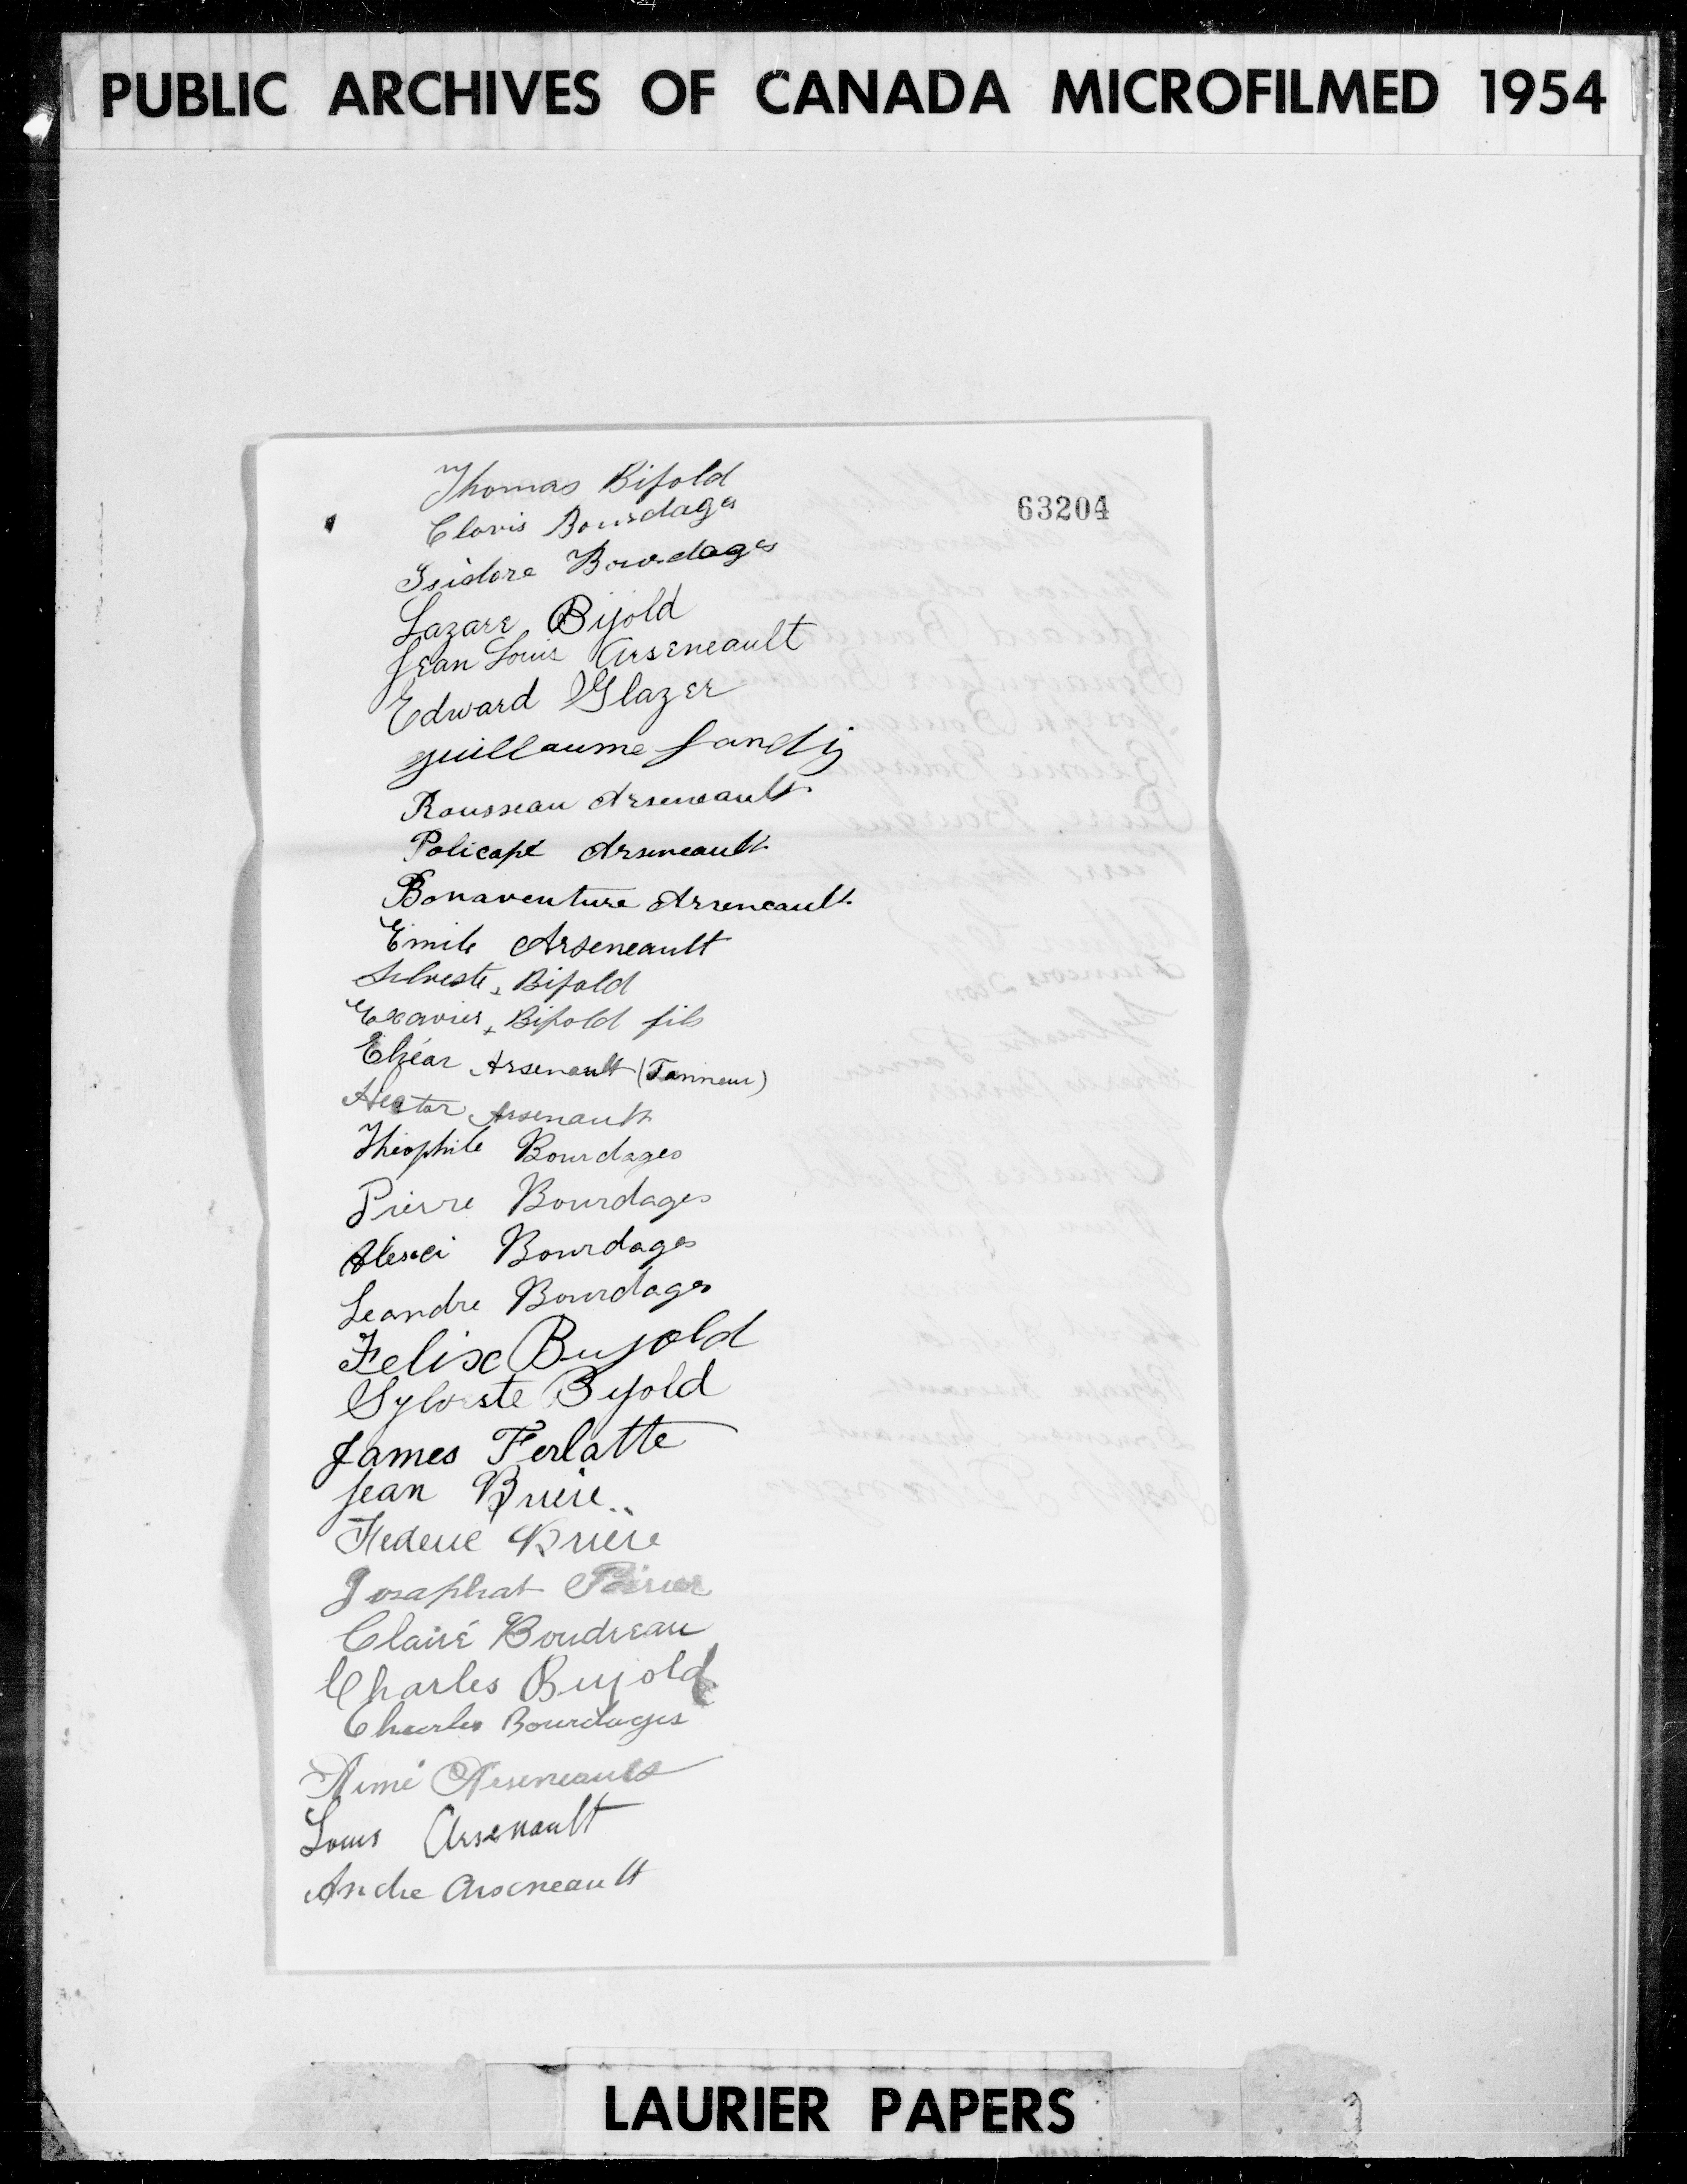 PUBLIC ARCHIVES OF CANADA MICROFILMED 1954
63204
Thomas Bijold
Clovis Bourdages
Isidore Bourdages
Lazare Bijold
Jean Louis Arseneault
Edward Glazer
guillaume Landry
Rousseau Arseneault
Policape Arseneault
Bonaventure Arseneault
Emile Arseneault
Silveste x Bijold
Exavier x Bijold fils
Elzéar Arsenault (Tanneur)
Hector Arsenault
Théophile Bourdages
Pierre Bourdages
Alexci Bourdages
Leandre Bourdages
Felix Bujold
Sylveste Bujold
James Ferlatte
Jean Briere
Frederic Brière
Josaphat Poirier
Clairé Boudreau
Charles Bujold
Charles Bourdages
Aimé Arseneault
Louis Arsenault
Andre Arseneault
LAURIER PAPERS